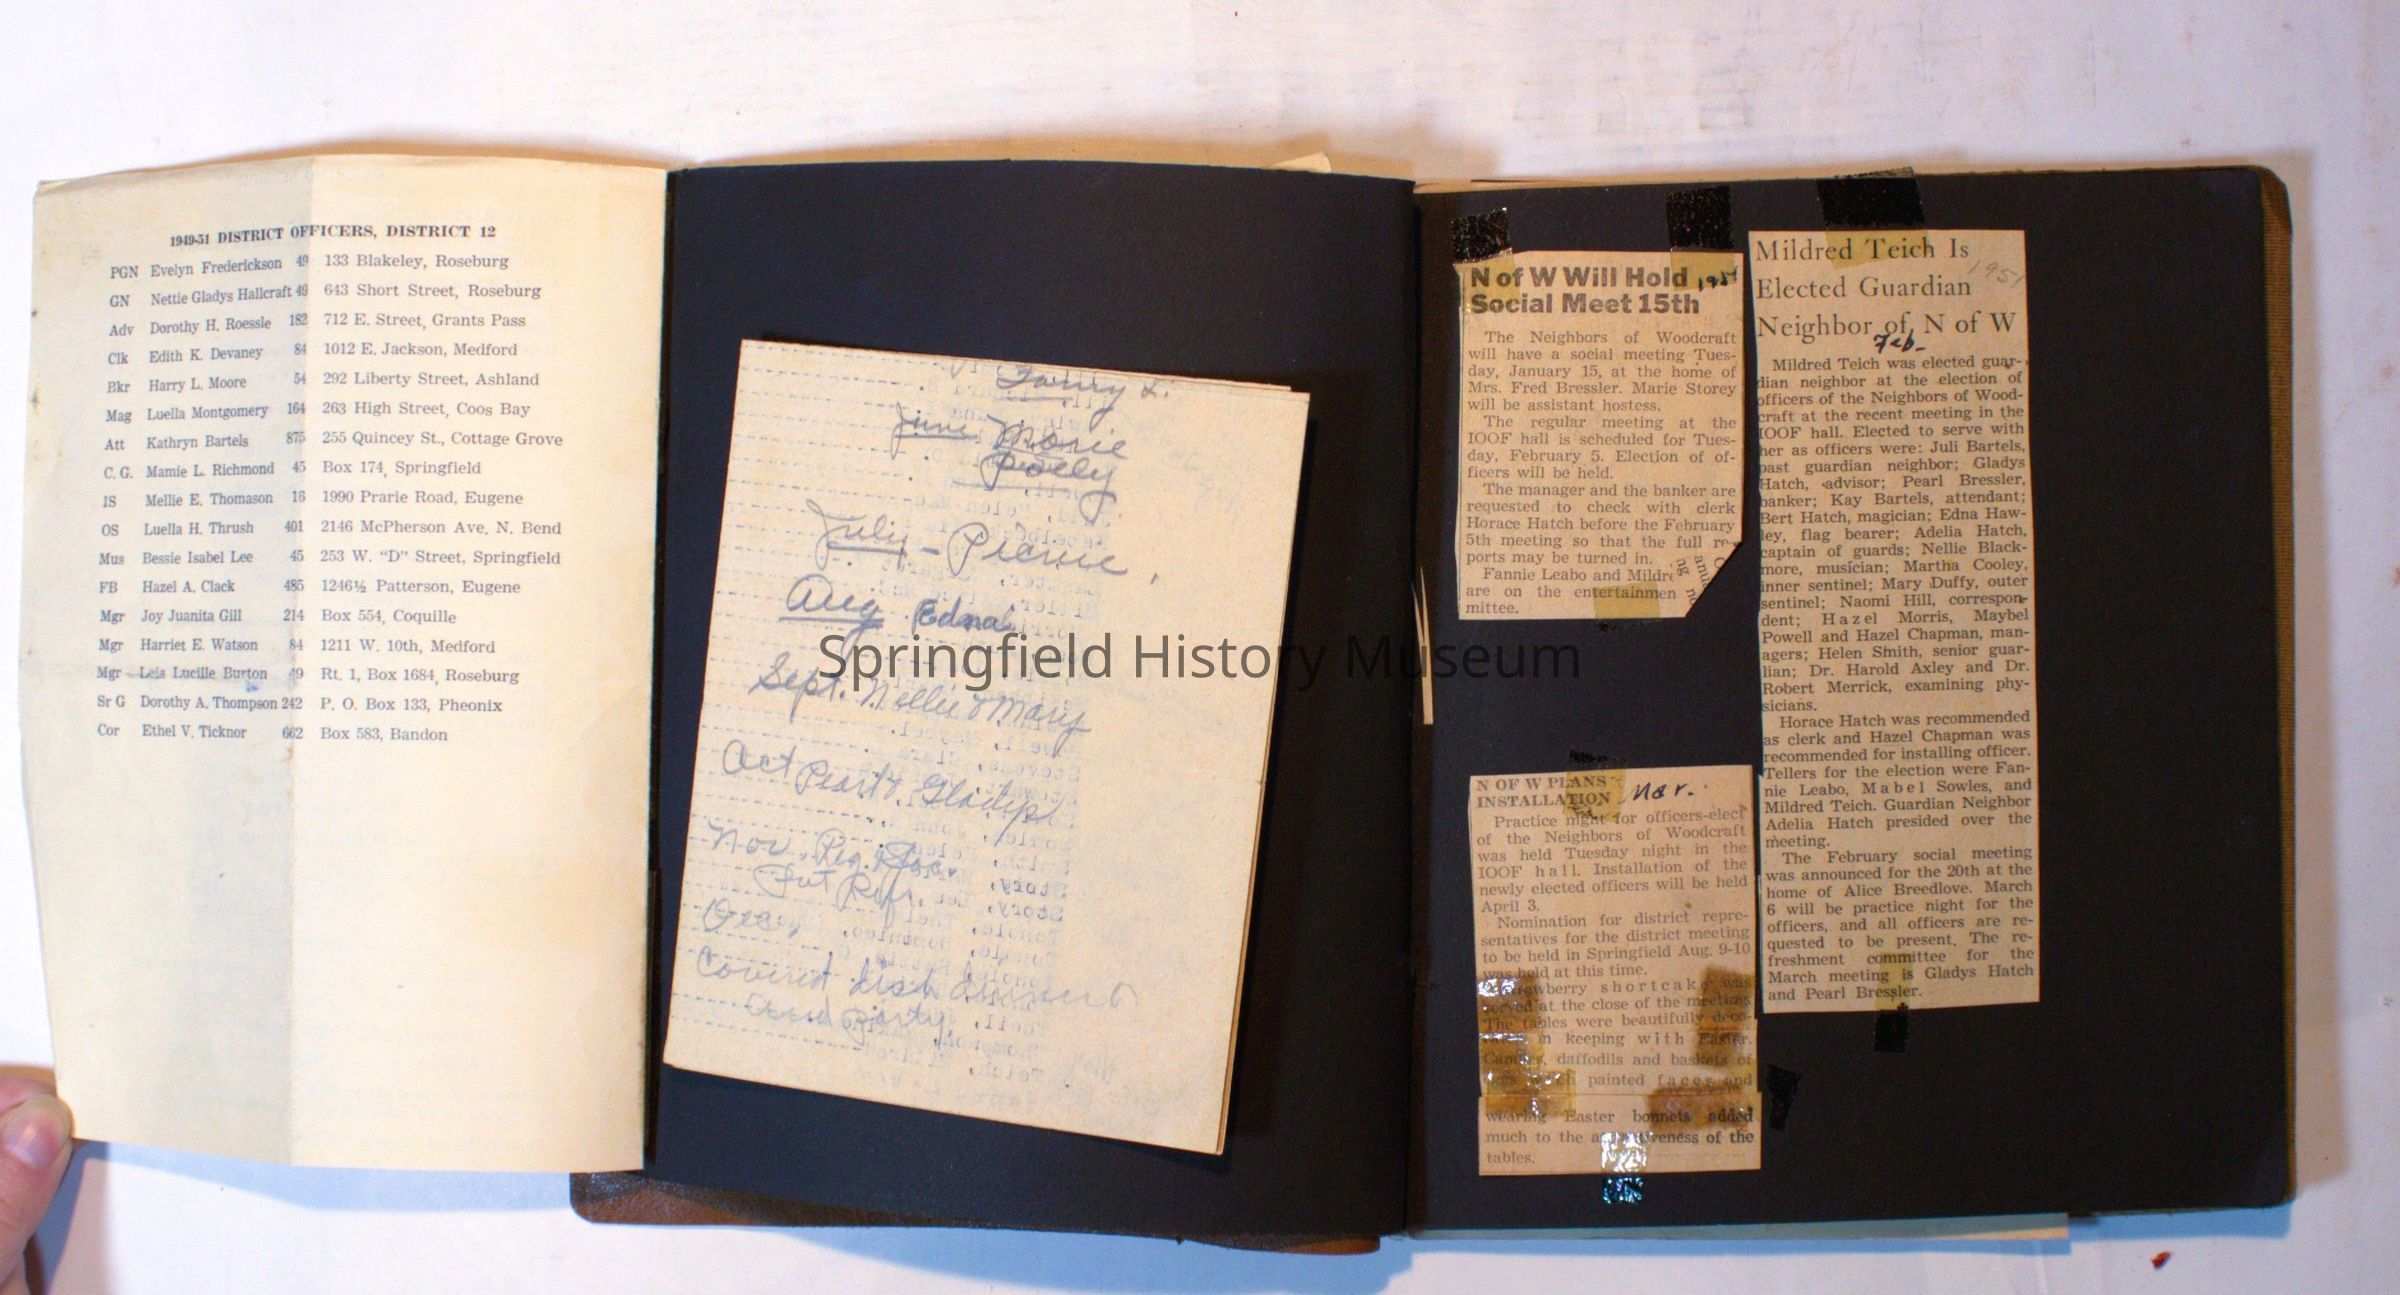 1949-51 DISTRICT OFFICERS, DISTRICT 12
PGN Evelyn Frederickson 49 133 Blakeley, Roseburg
GN Nettie Gladys Hallcraft 49 643 Short Street, Roseburg
Adv Dorothy H. Roessle 182 712 E. Street, Grants Pass
Clk Edith K. Devaney 84 1012 E. Jackson, Medford
Bkr Harry L. Moore 54 292 Liberty Street, Ashland
Mag Luella Montgomery 164 263 High Street, Coos Bay
Att Kathryn Bartels 875 255 Quincey St., Cottage Grove
C. G. Mamie L. Richmond 45 Box 174, Springfield
IS Mellie E. Thomason 16 1990 Prarie Road, Eugene
OS Luella H. Thrush 401 2146 McPherson Ave. N. Bend
Mus Bessie Isabel Lee 45 253 W. "D" Street, Springfield
FB Hazel A. Clack 485 1246½ Patterson, Eugene
Mgr Joy Juanita Gill 214 Box 554, Coquille
Mgr Harriet E. Watson 84 1211 W. 10th, Medford
Mgr Lois Lucille Burton 49 Rt. 1, Box 1684, Roseburg
Sr G Dorothy A. Thompson 242 P. O. Box 133, Pheonix
Cor Ethel V. Ticknor 662 Box 583, Bandon
June Marie
Polly
July -
Aug Edna
Sept. Nellie & Mary
Oct Pearl & Gladys
Nov. Reg. & Soc.
Dec.
Covered dish dinner
Card party
Springfield History Museum
N of W Will Hold
Social Meet 15th
The Neighbors of Woodcraft
will have a social meeting Tues-
day, January 15, at the home of
Mrs. Fred Bressler. Marie Storey
will be assistant hostess.
The regular meeting at the
IOOF hall is scheduled for Tues-
day, February 5. Election of of-
ficers will be held.
The manager and the banker are
requested to check with clerk
Horace Hatch before the February
5th meeting so that the full re-
ports may be turned in.
Fannie Leabo and Mildre
are on the entertainmen
mittee.
N OF W PLANS
INSTALLATION Mar.
Practice night for officers-elect
of the Neighbors of Woodcraft
was held Tuesday night in the
IOOF hall. Installation of the
newly elected officers will be held
April 3.
Nomination for district repre-
sentatives for the district meeting
to be held in Springfield Aug. 9-10
was held at this time.
shortcake was
served at the close of the meeting.
The tables were beautifully deco-
in keeping with Easter.
Candles, daffodils and baskets of
eggs with painted faces and
wearing Easter bonnets added
much to the attractiveness of the
tables.
Mildred Teich Is
1951
Elected Guardian
Neighbor of N of W
Feb-
Mildred Teich was elected guar-
dian neighbor at the election of
officers of the Neighbors of Wood-
craft at the recent meeting in the
IOOF hall. Elected to serve with
her as officers were: Juli Bartels,
past guardian neighbor; Gladys
Hatch, advisor; Pearl Bressler,
banker; Kay Bartels, attendant;
Bert Hatch, magician; Edna Haw-
ley, flag bearer; Adelia Hatch,
captain of guards; Nellie Black-
more, musician; Martha Cooley,
inner sentinel; Mary Duffy, outer
sentinel; Naomi Hill, correspon-
dent; Hazel Morris, Maybel
Powell and Hazel Chapman, man-
agers; Helen Smith, senior guar-
dian; Dr. Harold Axley and Dr.
Robert Merrick, examining phy-
sicians.
Horace Hatch was recommended
as clerk and Hazel Chapman was
recommended for installing officer.
Tellers for the election were Fan-
nie Leabo, Mabel Sowles, and
Mildred Teich. Guardian Neighbor
Adelia Hatch presided over the
meeting.
The February social meeting
was announced for the 20th at the
home of Alice Breedlove. March
6 will be practice night for the
officers, and all officers are re-
quested to be present. The re-
freshment committee for the
March meeting is Gladys Hatch
and Pearl Bressler.